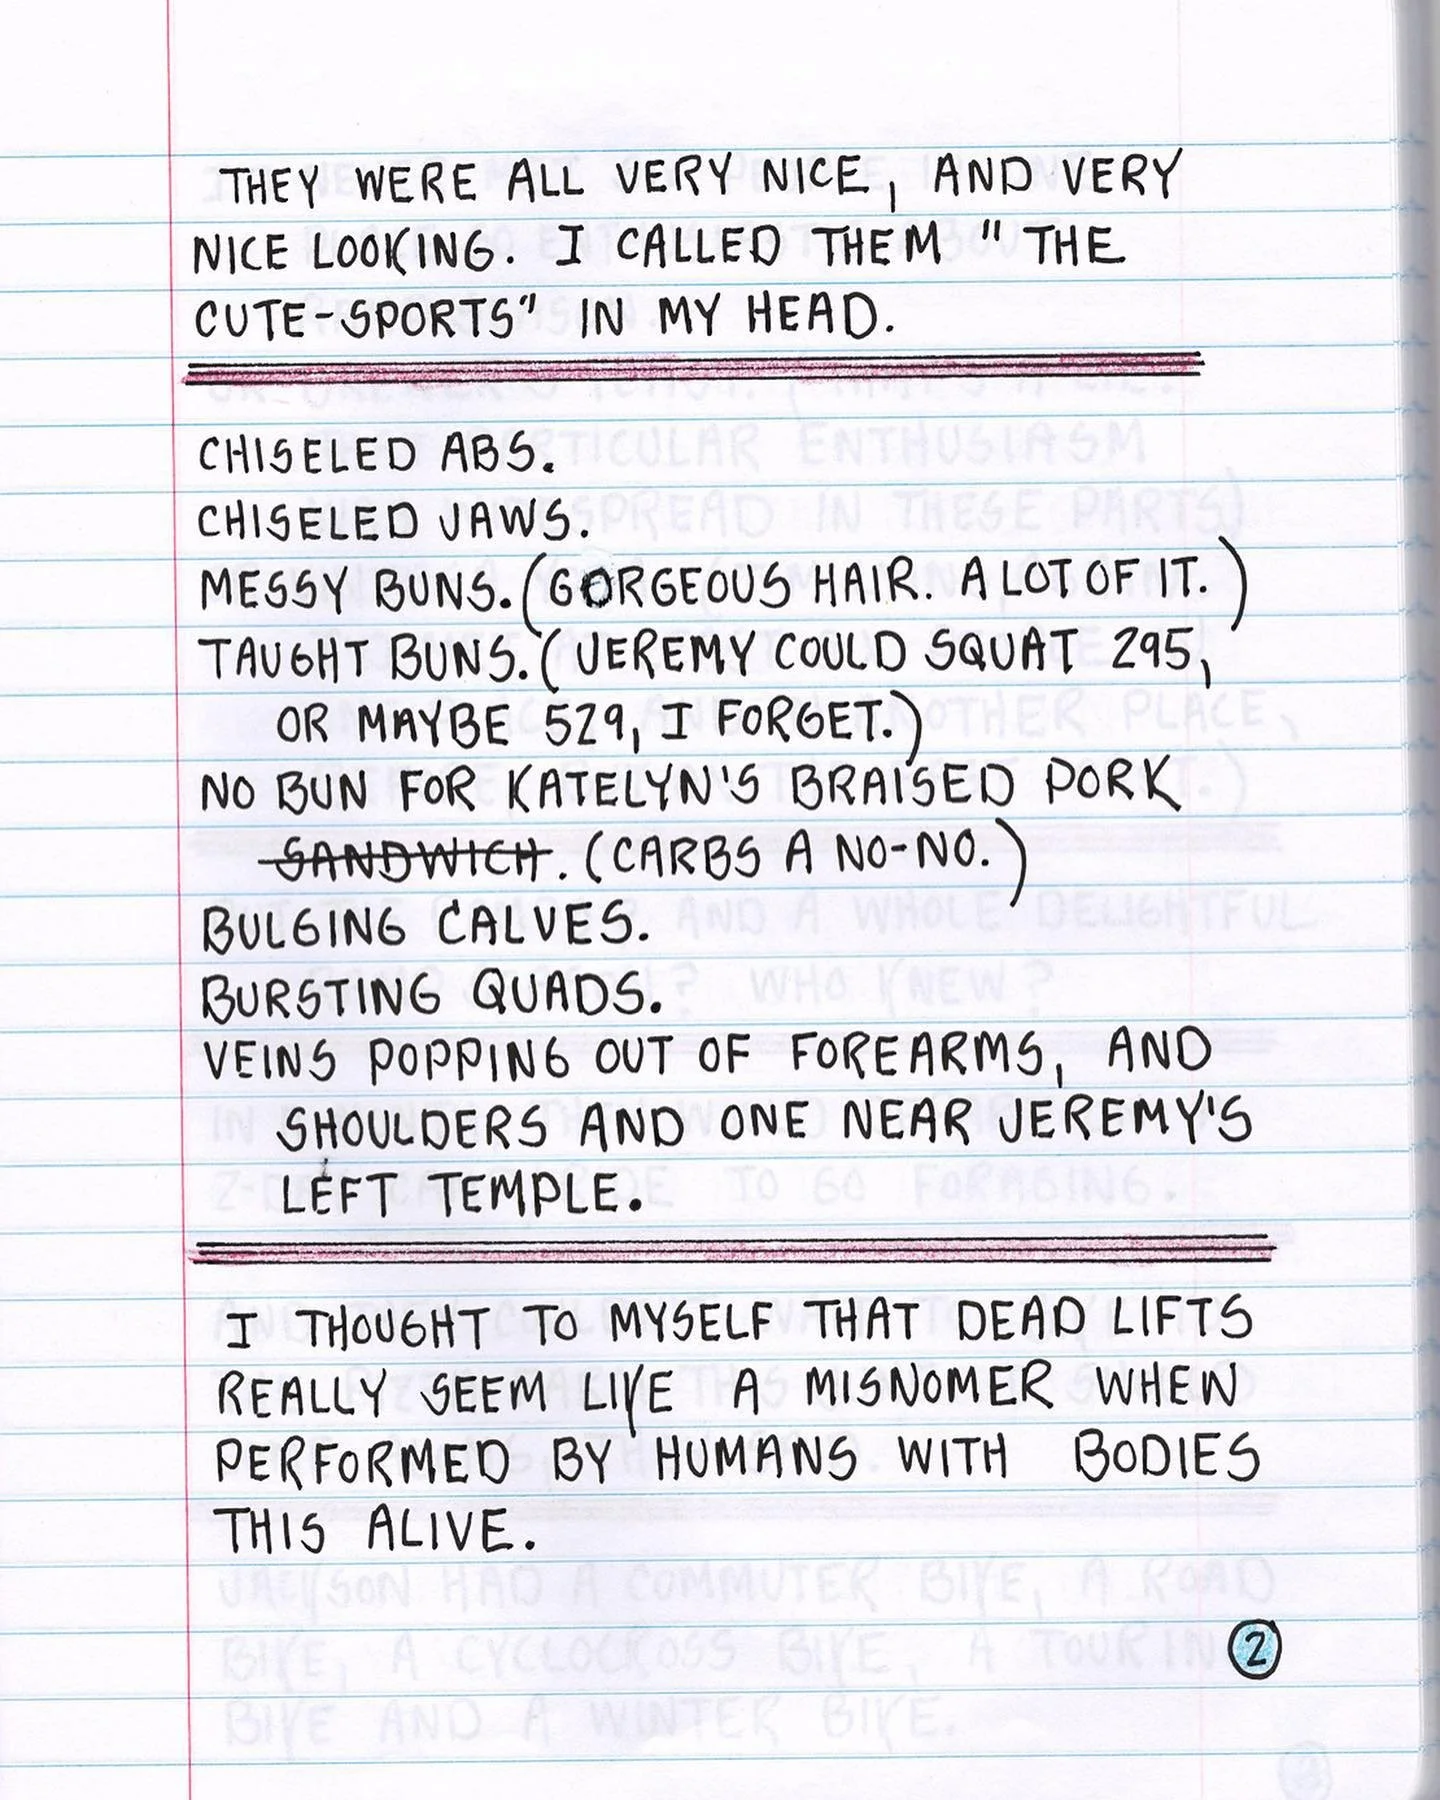 THEY WERE ALL VERY NICE, AND VERY
NICE LOOKING. I CALLED THEM "THE
CUTE-SPORTS" IN MY HEAD.
CHISELED ABS.
CHISELED JAWS.
MESSY BUNS. (GORGEOUS HAIR. A LOT OF IT.)
TAUGHT BUNS. (JEREMY COULD SQUAT 295,
OR MAYBE 529, I FORGET.)
NO BUN FOR KATELYN'S BRAISED PORK
SANDWICH. (CARBS A NO-NO.)
BULGING CALVES.
BURSTING QUADS.
VEINS POPPING OUT OF FOREARMS, AND
SHOULDERS AND ONE NEAR JEREMY'S
LEFT TEMPLE.
I THOUGHT TO MYSELF THAT DEAD LIFTS
REALLY SEEM LIKE A MISNOMER WHEN
PERFORMED BY HUMANS WITH BODIES
THIS ALIVE.
2
JACKSON HAD A COMMUTER BIKE, A ROAD
BIKE, A CYCLOCROSS BIKE, A TOURING
BIKE AND A WINTER BIKE.